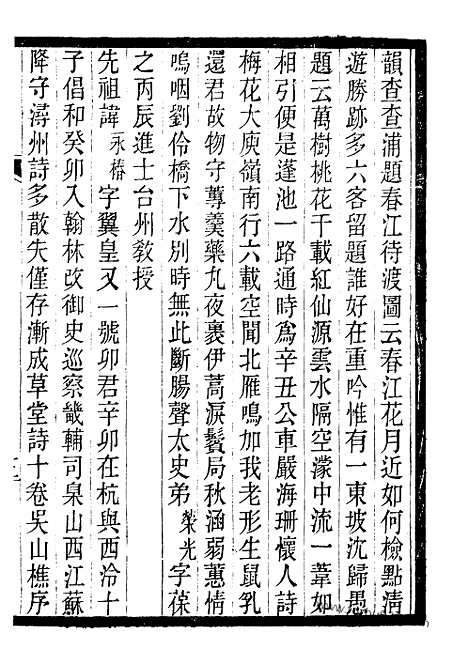 韻查查浦題春江待渡圖云春江花月近如何檢點淸
遊勝跡多六客留題誰好在重吟惟有一東坡沈歸愚
題云萬樹桃花千載紅仙源雲水隔空濛中流一葦如
相引便是蓬池一路通時爲辛丑公車嚴海珊懷人詩
梅花大庾嶺南行六載空聞北雁鳴加我老形生鼠乳
還君故物守蓴羹藥丸夜裹伊蒿淚鬢局秋涵弱蕙情
嗚咽劉伶橋下水別時無此斷腸聲太史弟榮光字葆
之丙辰進士台州敎授
先祖諱永椿字翼皇又一號卯君辛卯在杭與西泠十
子倡和癸卯入翰林改御史巡察畿輔司臬山西江蘇
降守潯州詩多散失僅存漸成草堂詩十卷吳山樵序